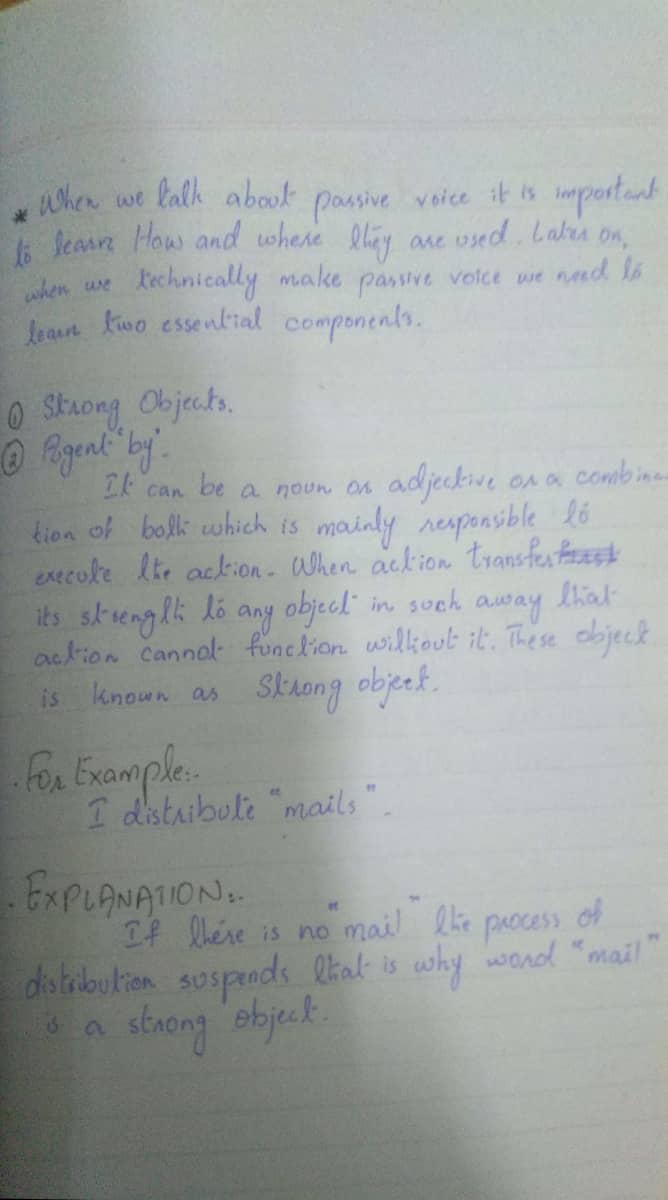 * When we talk about passive voice it is important
to learn How and where they are used. Later on,
when we technically make passive voice we need to
learn two essential components.
① Strong Objects.
② Agent "by".
It can be a noun or adjective or a combina-
tion of both which is mainly responsible to
execute the action. When action transfer
its strength to any object in such away that
action cannot function without it. These object
is known as Strong object.
. For Example:-
I distribute "mails".
. EXPLANATION:-
If there is no "mail" the process of
distribution suspends that is why word "mail"
is a strong object.